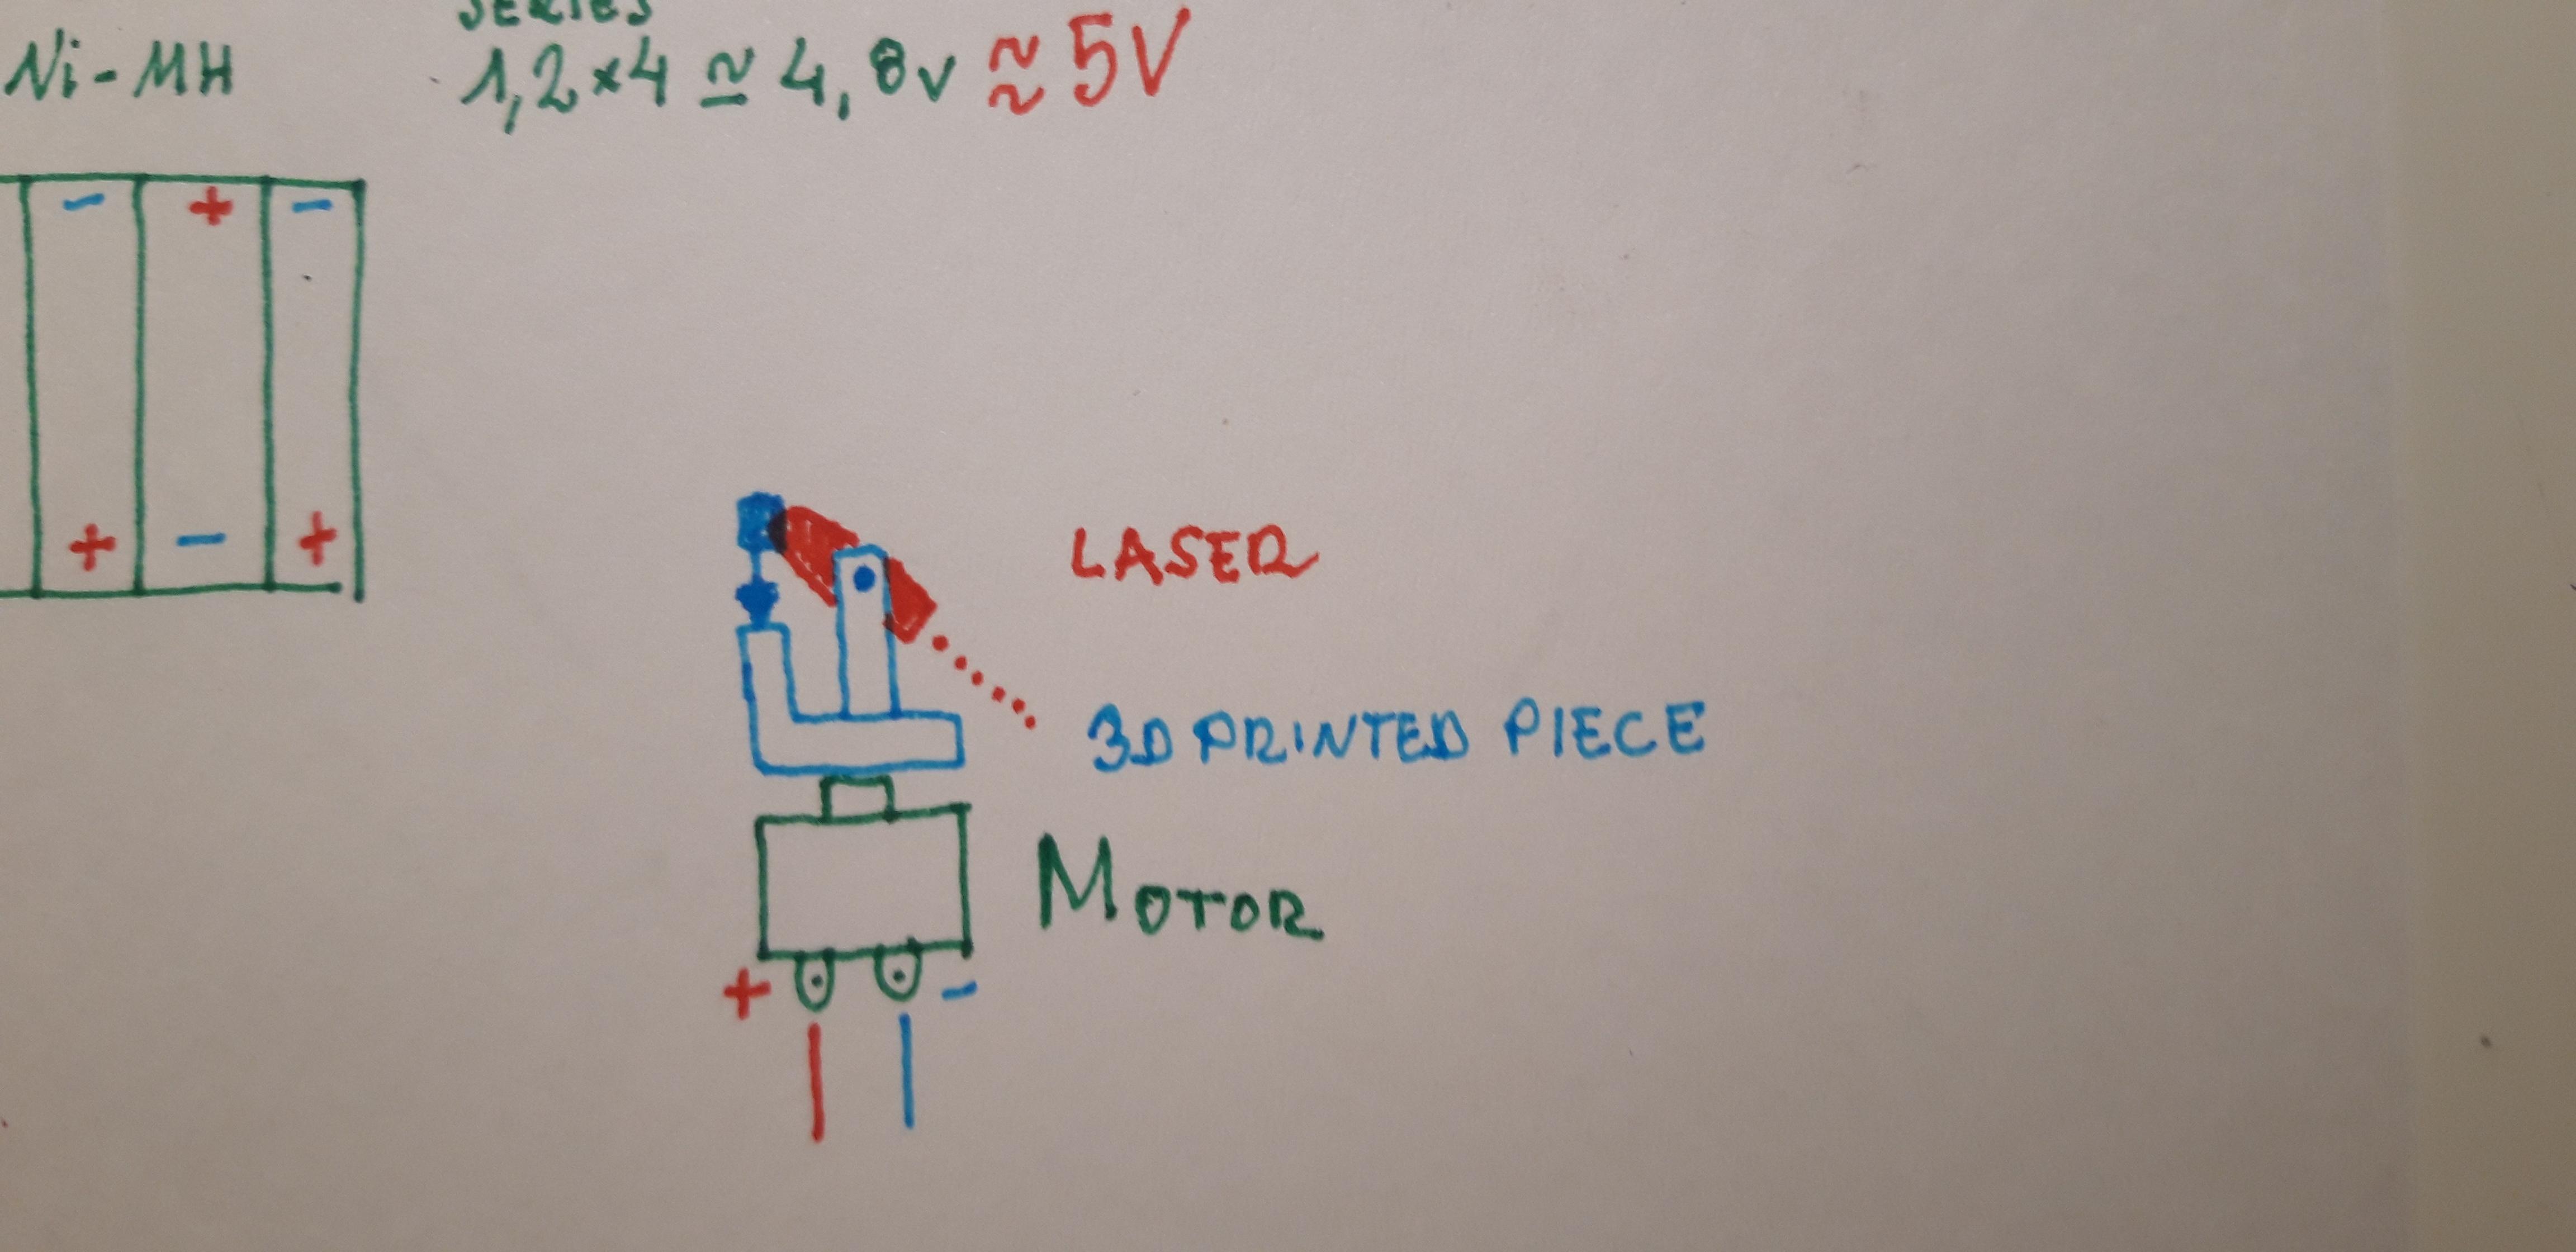 SERIES
Ni-MH 1,2×4 ≃ 4,8v ≈ 5V
- + -
+ - +
LASER
3D PRINTED PIECE
MOTOR
+ -